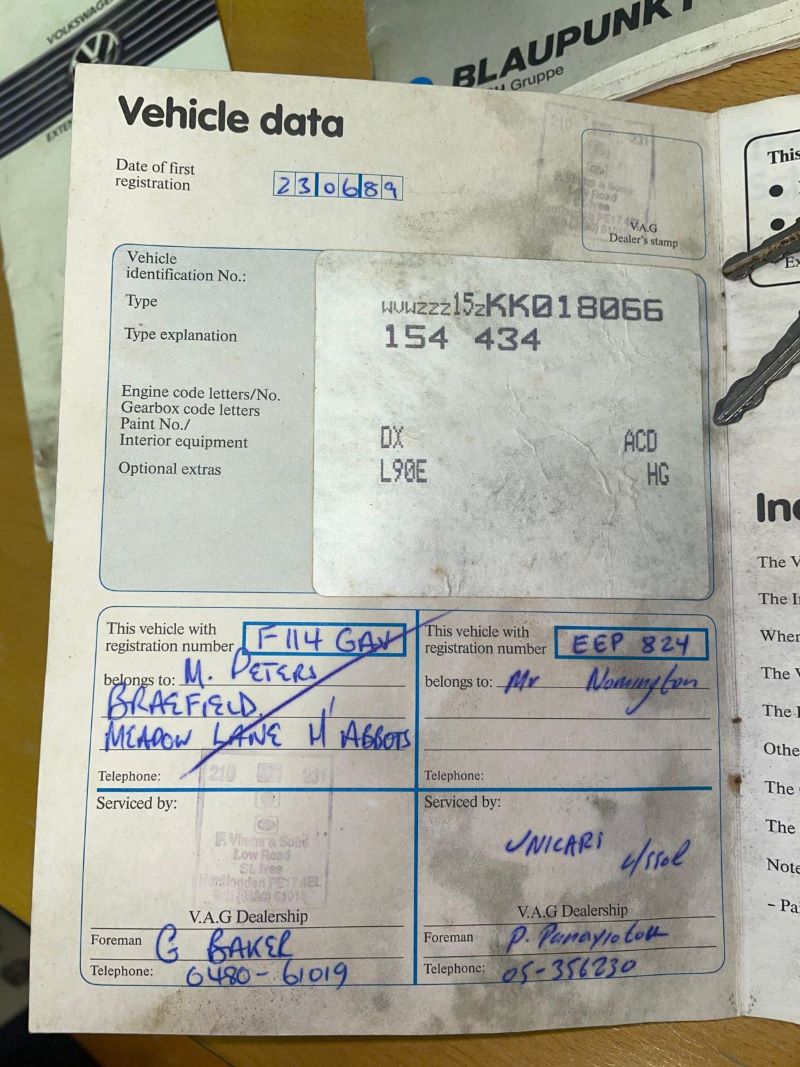 VOLKSWAGEN
BLAUPUNKT
Gruppe
Vehicle data
Date of first
registration
230689
210 231
V.A.G
Dealer's stamp
Vehicle
identification No.:
Type
Type explanation
Engine code letters/No.
Gearbox code letters
Paint No./
Interior equipment
Optional extras
WVWZZZ15ZKK018066
154 434
DX ACD
L90E HG
This vehicle with
registration number F114 GAV
belongs to: M. PETERS
BRAEFIELD
MEADOW LANE H' ABBOTS
Telephone:
This vehicle with
registration number EEP 824
belongs to: Mr Nomington
Telephone:
Serviced by:
210 231
Low Road
St. Ives
Huntingdon PE17 4EL
V.A.G Dealership
Foreman G BAKER
Telephone: 0480-61019
Serviced by:
UNICARS
V.A.G Dealership
Foreman P. Panayiotou
Telephone: 05-356230
This
Ex
In
The V
The I
When
The V
The
Othe
The
The
Note
– Pa